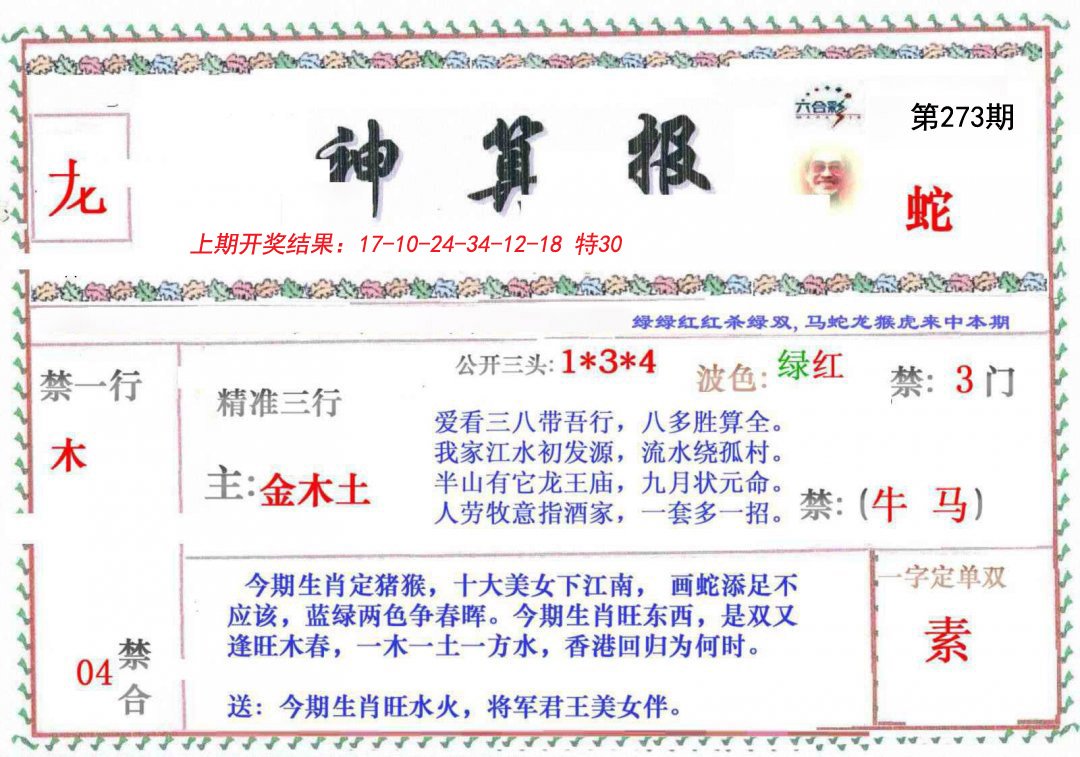 六合彩
第273期
神算报
龙
蛇
上期开奖结果：17-10-24-34-12-18 特30
绿绿红红杀绿双,马蛇龙猴虎来中本期
禁一行
木
精准三行
主:金木土
公开三头:1*3*4
波色:绿红
禁:3门
爱看三八带吾行，八多胜算全。
我家江水初发源，流水绕孤村。
半山有它龙王庙，九月状元命。
人劳牧意指酒家，一套多一招。
禁:(牛 马)
今期生肖定猪猴，十大美女下江南， 画蛇添足不
应该，蓝绿两色争春晖。今期生肖旺东西，是双又
逢旺木春，一木一土一方水，香港回归为何时。
送：今期生肖旺水火，将军君王美女伴。
04禁合
一字定单双
素